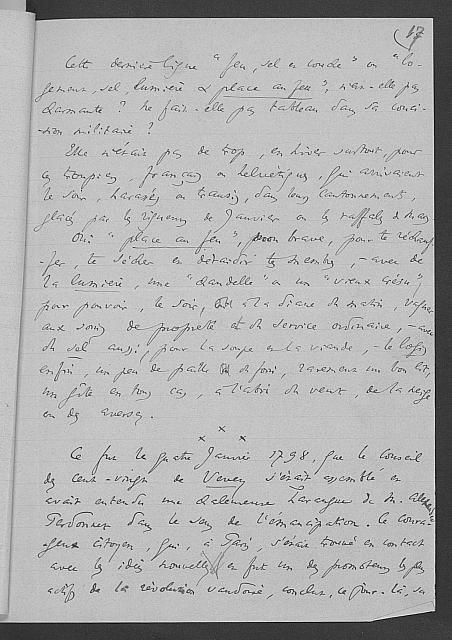 17
Cette dernière ligne "feu, sel et coude" ou "lo-
gement, sel, lumière & place au feu", n'est-elle pas
charmante ? Ne fait-elle pas tableau dans sa conci-
-sion militaire ?
Elle n'était pas de trop, en hiver surtout, pour
les troupiers, français ou helvétiques, qui arrivaient
le soir, harassés ou transis, dans leurs cantonnements,
glacés par les rigueurs de Janvier ou les raffales de Mars.
Oui "place au feu", mon brave, pour te réchauf-
-fer, te sécher et détendre tes membres, - avec de
la lumière, une "chandelle" ou un "vieux crésu",
pour pouvoir, le soir, à la diane du matin, vaquer
aux soins de propreté et du service ordinaire, - avec
du sel aussi, pour la soupe et la viande, - le logis
enfin, un peu de paille de foin, rarement un bon lit,
un gîte en tous cas, à l'abri du vent, de la neige
et des averses.
x x x
Ce fut le quatre Janvier 1798, que le Conseil
des cent-vingt de Vevey s'était assemblé et
avait entendu une chaleureuse harangue de M.
Perdonnet dans le sens de l'émancipation. Le coura-
-geux citoyen, qui, à Paris, s'était trouvé en contact
avec les idées nouvelles et fut un des promoteurs les plus
actifs de la révolution vaudoise, conclut, ce jour-là, sa